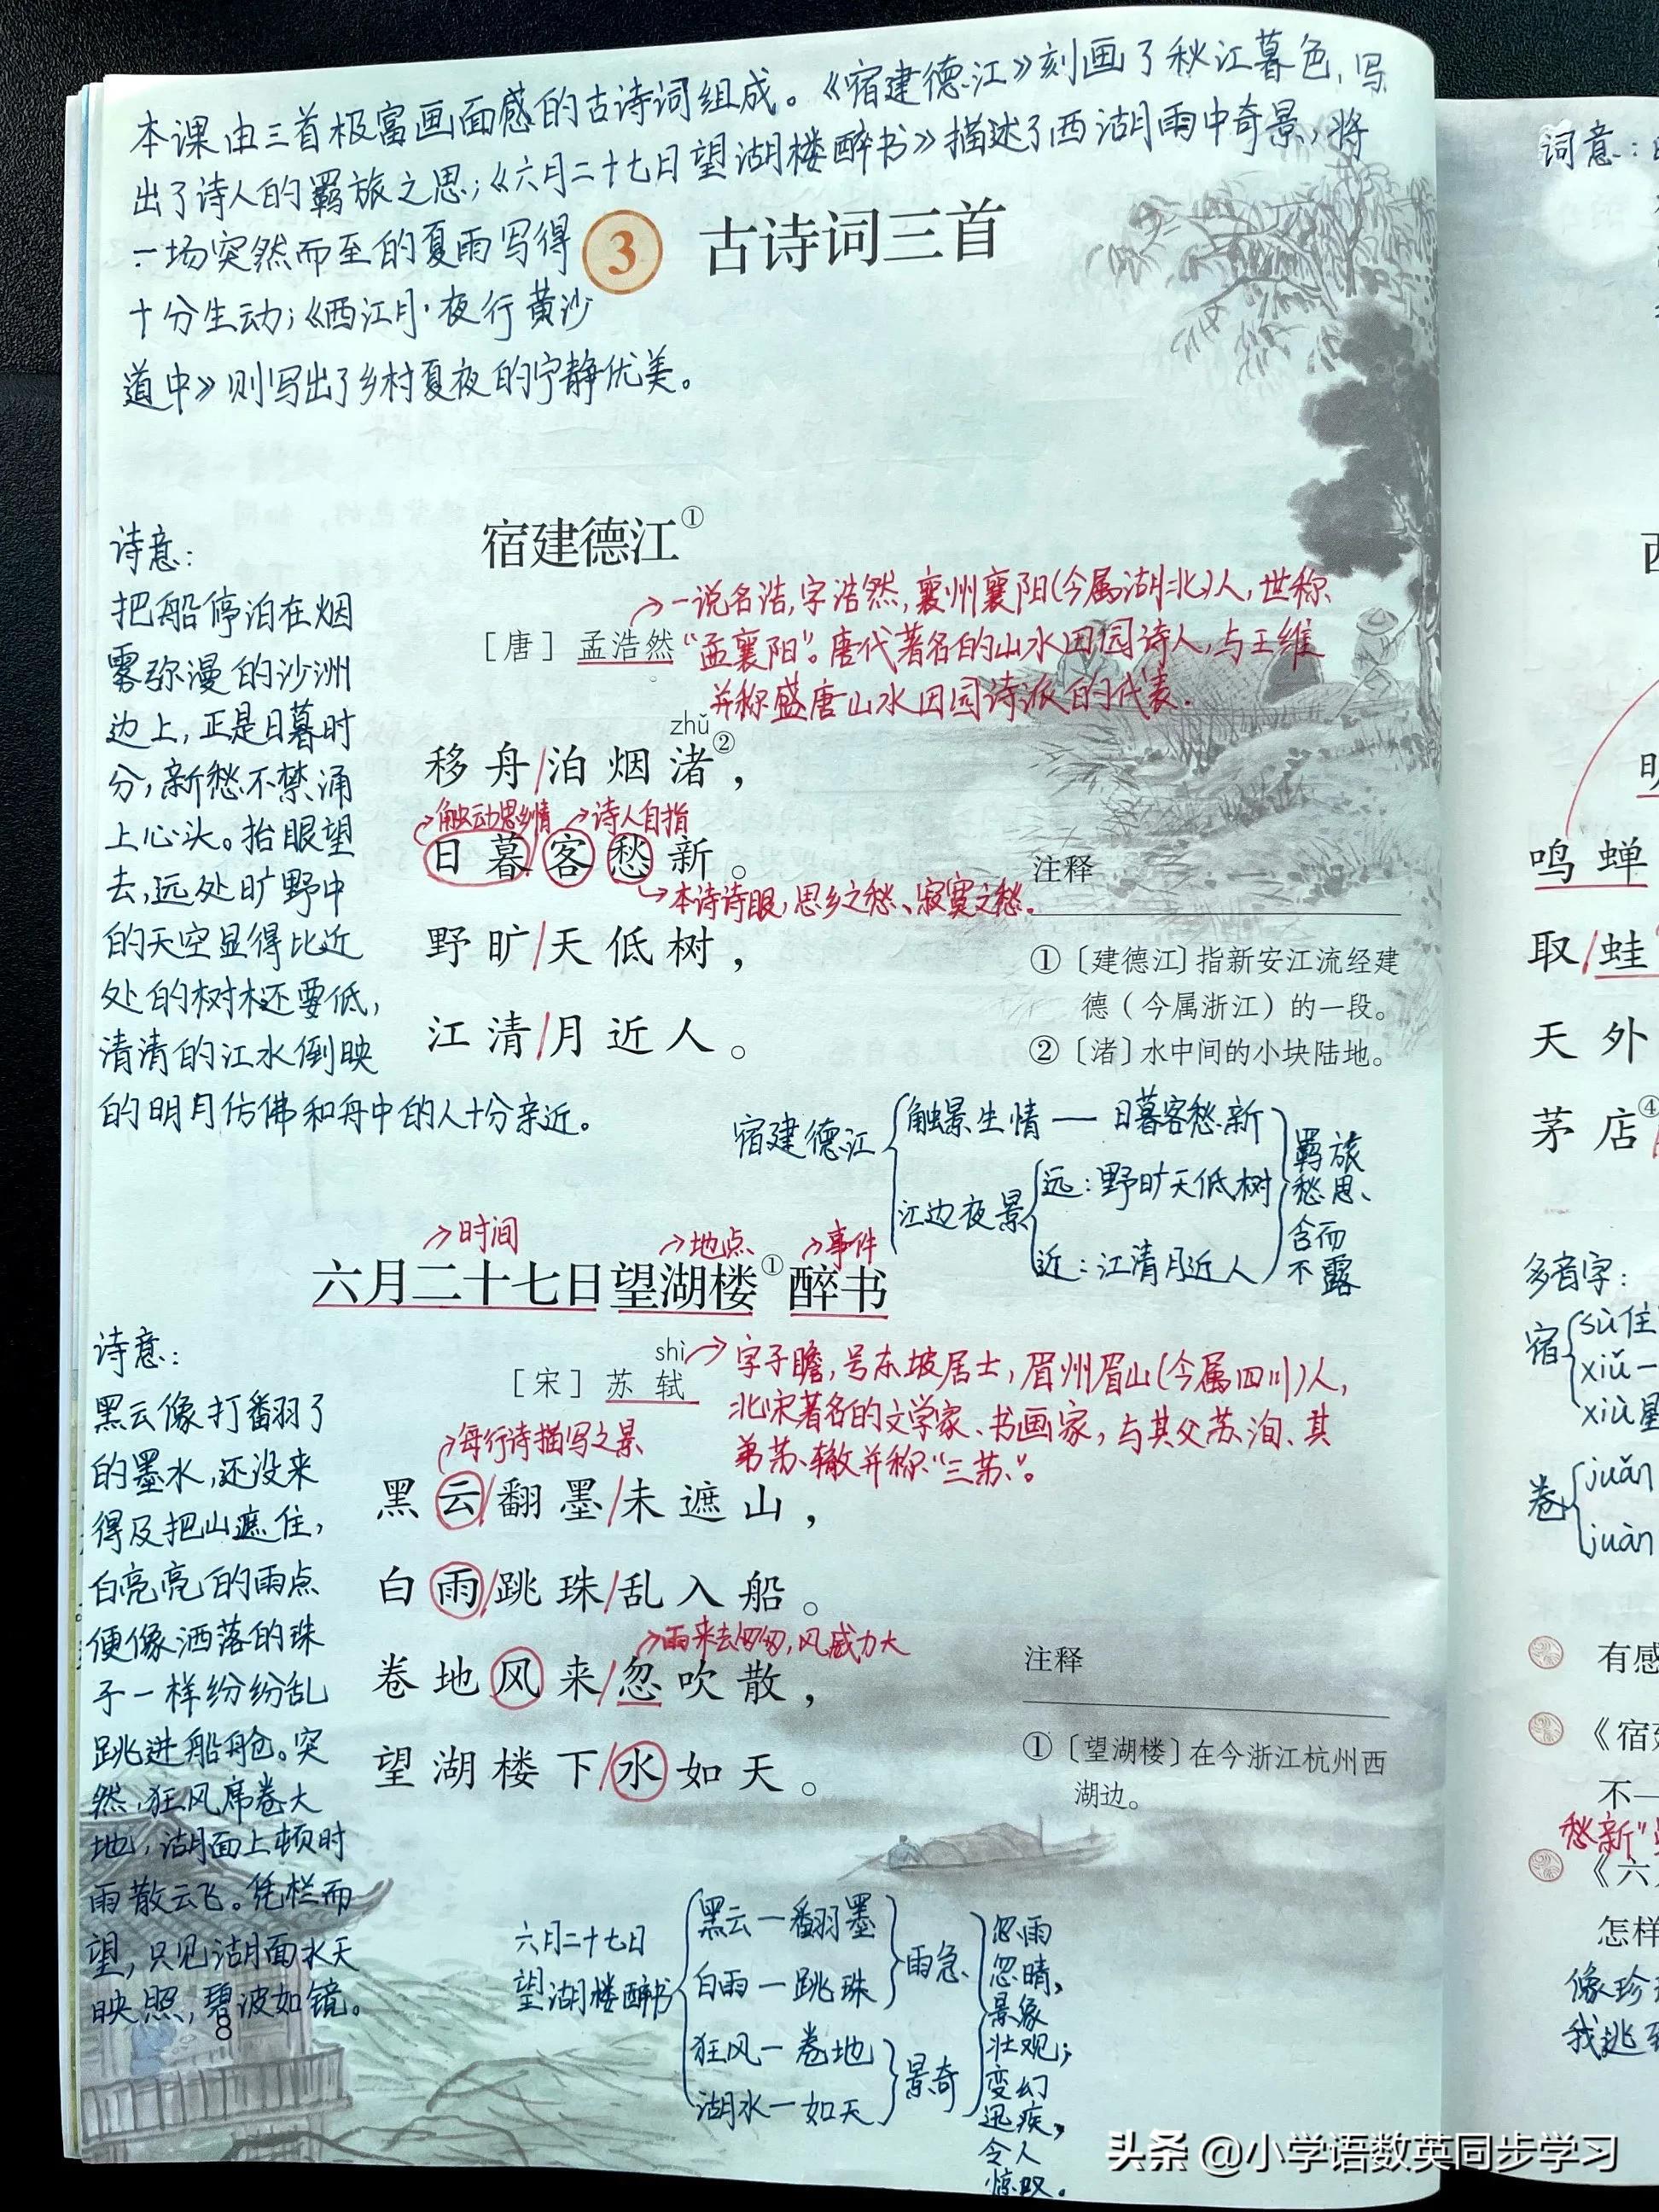 本课由三首极富画面感的古诗词组成。《宿建德江》刻画了秋江暮色,写
出了诗人的羁旅之思;《六月二十七日望湖楼醉书》描述了西湖雨中奇景,将
一场突然而至的夏雨写得
十分生动;《西江月·夜行黄沙
道中》则写出了乡村夏夜的宁静优美。
3 古诗词三首
宿建德江①
[唐] 孟浩然
一说名浩,字浩然,襄州襄阳(今属湖北)人,世称
“孟襄阳”。唐代著名的山水田园诗人,与王维
并称盛唐山水田园诗派的代表.
zhǔ
移舟/泊烟渚②,
触动思乡情
诗人自指
日暮客愁新。
本诗诗眼,思乡之愁、寂寞之愁.
野旷/天低树,
江清/月近人。
诗意:
把船停泊在烟
雾弥漫的沙洲
边上,正是日暮时
分,新愁不禁涌
上心头。抬眼望
去,远处旷野中
的天空显得比近
处的树林还要低,
清清的江水倒映
的明月仿佛和舟中的人十分亲近。
注释
①〔建德江〕指新安江流经建
德(今属浙江)的一段。
②〔渚〕水中间的小块陆地。
宿建德江
触景生情—日暮客愁新
江边夜景
远:野旷天低树
近:江清月近人
羁旅
愁思、
含而
不露
时间
地点
事件
六月二十七日望湖楼①醉书
shì
[宋] 苏轼
字子瞻,号东坡居士,眉州眉山(今属四川)人,
北宋著名的文学家、书画家,与其父苏洵、其
弟苏辙并称“三苏”。
每行诗描写之景
黑云/翻墨/未遮山,
白雨/跳珠/乱入船。
雨来去匆匆,风威力大
卷地风来/忽吹散,
望湖楼下/水如天。
诗意:
黑云像打翻了
的墨水,还没来
得及把山遮住,
白亮亮的雨点
便像洒落的珠
子一样纷纷乱
跳进船舱。突
然,狂风席卷大
地,湖面上顿时
雨散云飞。凭栏而
望,只见湖面水天
映照,碧波如镜。
注释
①〔望湖楼〕在今浙江杭州西
湖边。
六月二十七日
望湖楼醉书
黑云—翻墨
白雨—跳珠
雨急
狂风—卷地
湖水—如天
景奇
忽雨
忽晴,
景象
壮观;
变幻
迅疾,
令人
惊叹。
8
词意:
鸣蝉
取/蛙
天外
茅店④
多音字:
宿
sù住
xiǔ一
xiù星
卷
juǎn
juàn
有感
《宿建
不一
愁新”
《六
怎样
像珍
我逃
头条 @小学语数英同步学习